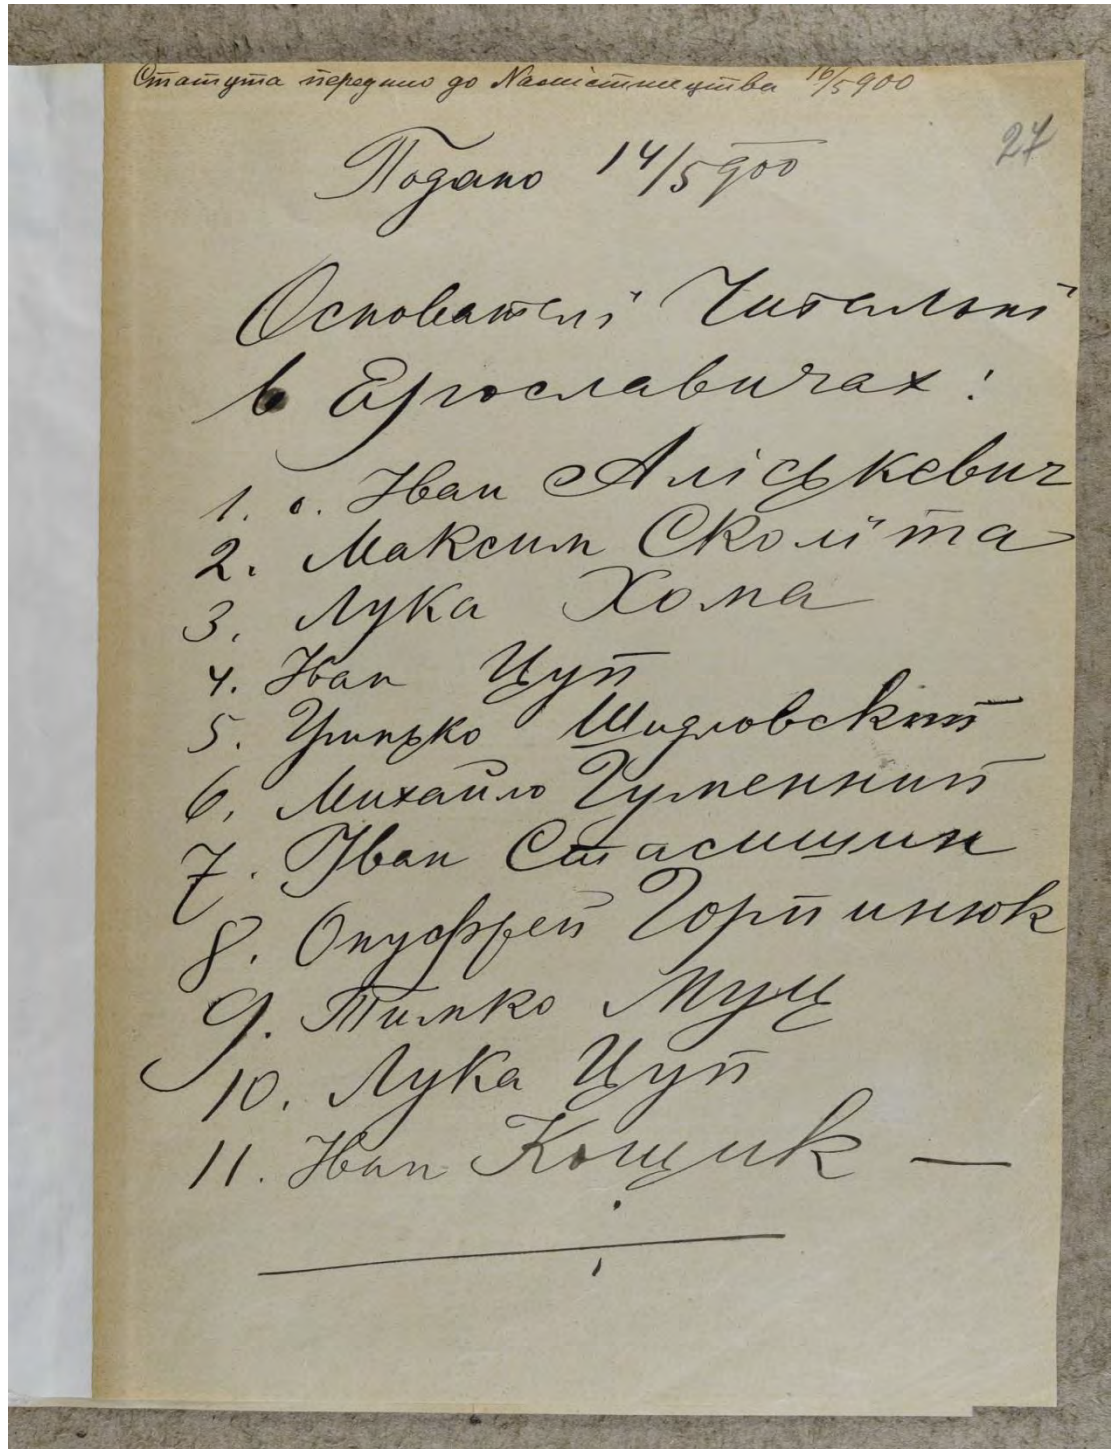 Статута передано до Намісництва 16/5 900
27
Подано 14/5 900
Основателї Читальнї
в Ярославичах:
1. о. Іван Аліськевич
2. Максим Сколїта
3. Лука Хома
4. Іван Цуп
5. Гринько Шидловский
6. Михайло Гуменний
7. Іван Стасишин
8. Онуфрей Горпинюк
9. Тимко Муц
10. Лука Цуп
11. Іван Кощик —